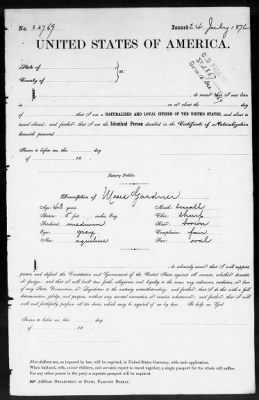 No. 22769 Issued 24 July 1872
UNITED STATES OF AMERICA.
State of
County of
ss:
I, do swear that I was born
in on or about the day
of , that I am a NATURALIZED AND LOYAL CITIZEN OF THE UNITED STATES, and about to
travel abroad; and further, that I am the Identical Person described in the Certificate of Naturalization
herewith presented.
Sworn to before me, this day
of 18
Notary Public.
Description of Moses Gardiner
Age: years Mouth: small
Stature: 5 feet inches, Eng. Chin: sharp
Forehead: medium Hair: brown
Eyes: gray Complexion: fair
Nose: aquiline Face: oval
I, do solemnly swear that I will support,
protect, and defend the Constitution and Government of the United States against all enemies, whether domestic
or foreign; and that I will bear true faith, allegiance, and loyalty to the same, any ordinance, resolution, or law
of any State, Convention, or Legislature to the contrary notwithstanding; and further, that I do this with a full
determination, pledge, and purpose, without any mental reservation or evasion whatsoever; and further, that I will
well and faithfully perform all the duties which may be required of me by law. So help me God.
Sworn to before me, this day
of 18
Five dollars tax, as imposed by law, will be required, in United States Currency, with each application.
When husband, wife, minor children, and servants expect to travel together, a single passport for the whole will suffice.
For any other person in the party a separate passport will be required.
Address DEPARTMENT OF STATE, PASSPORT BUREAU.